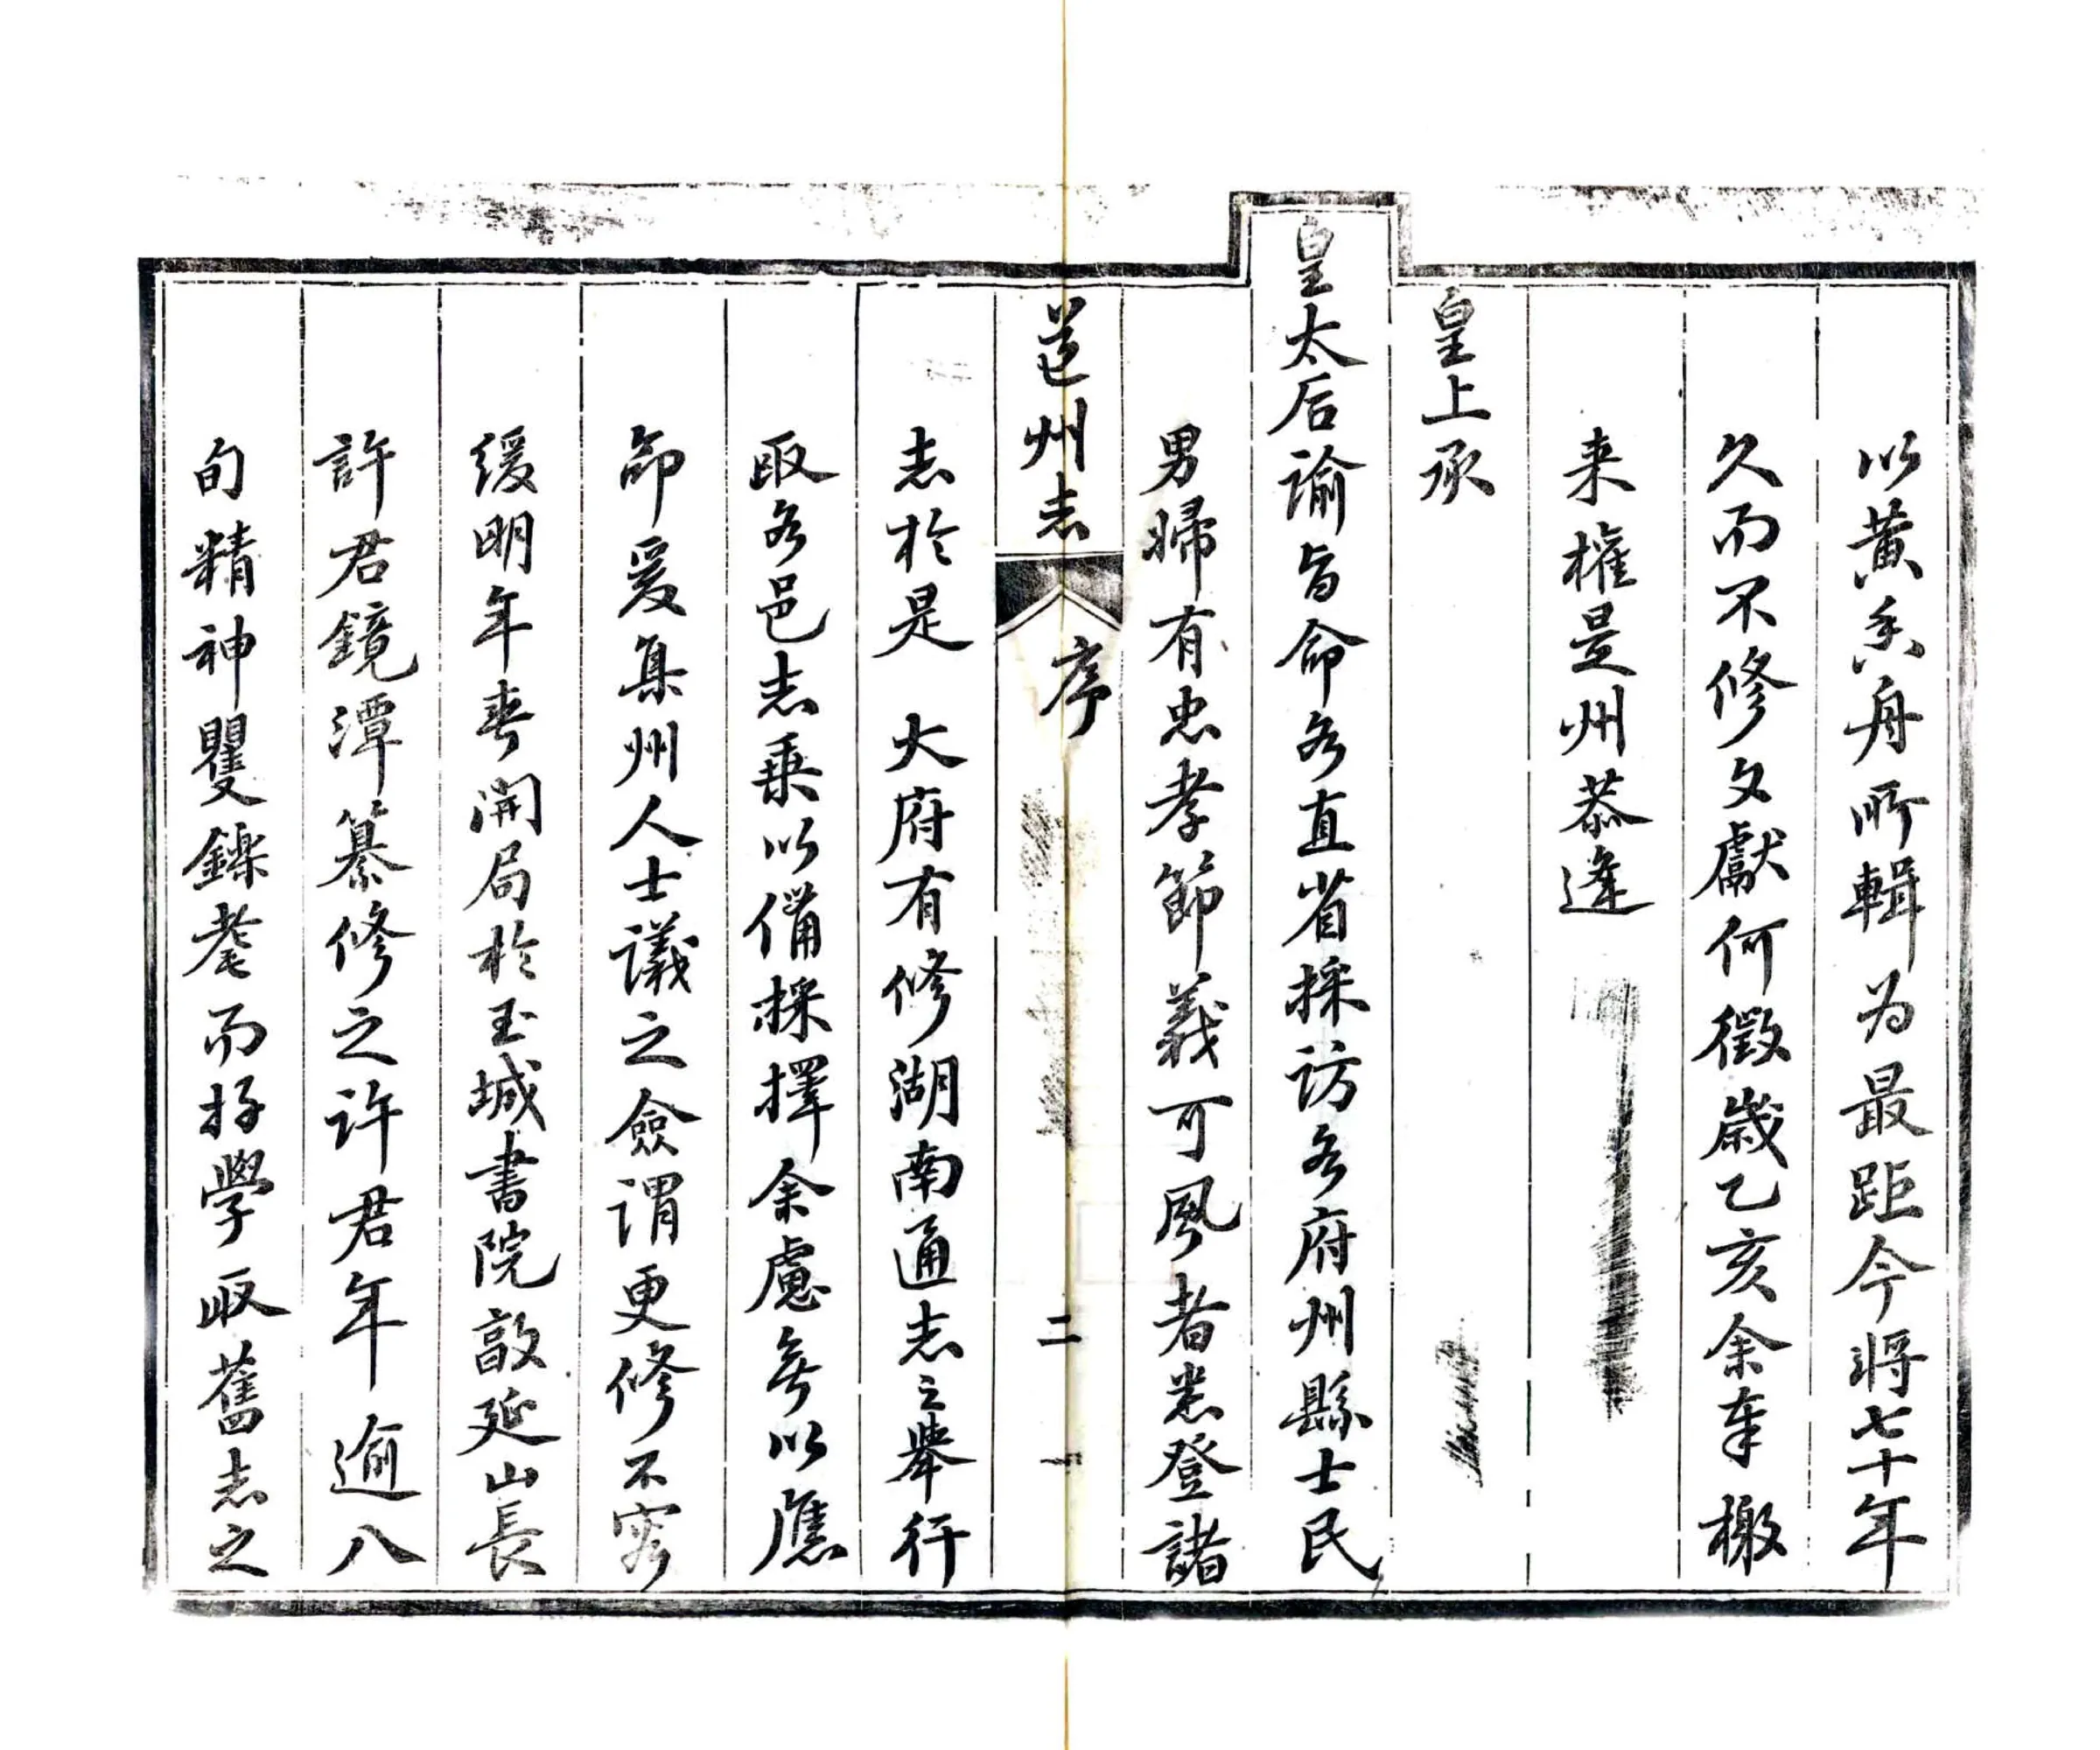 以黃秊舟所輯為最距今將七十年
久而不修文獻何徵歲乙亥余奉檄
来權是州恭逢
皇上承
皇太后諭旨命各直省採訪各府州縣士民
男婦有忠孝節義可風者悉登諸
道州志
序
二
志於是 大府有修湖南通志之舉行
取各邑志乗以備採擇余慮無以應
命爰集州人士議之僉謂更修不容
緩明年春開局於玉城書院敦延山長
許君鏡潭纂修之许君年逾八
旬精神矍鑠耄而好學取舊志之